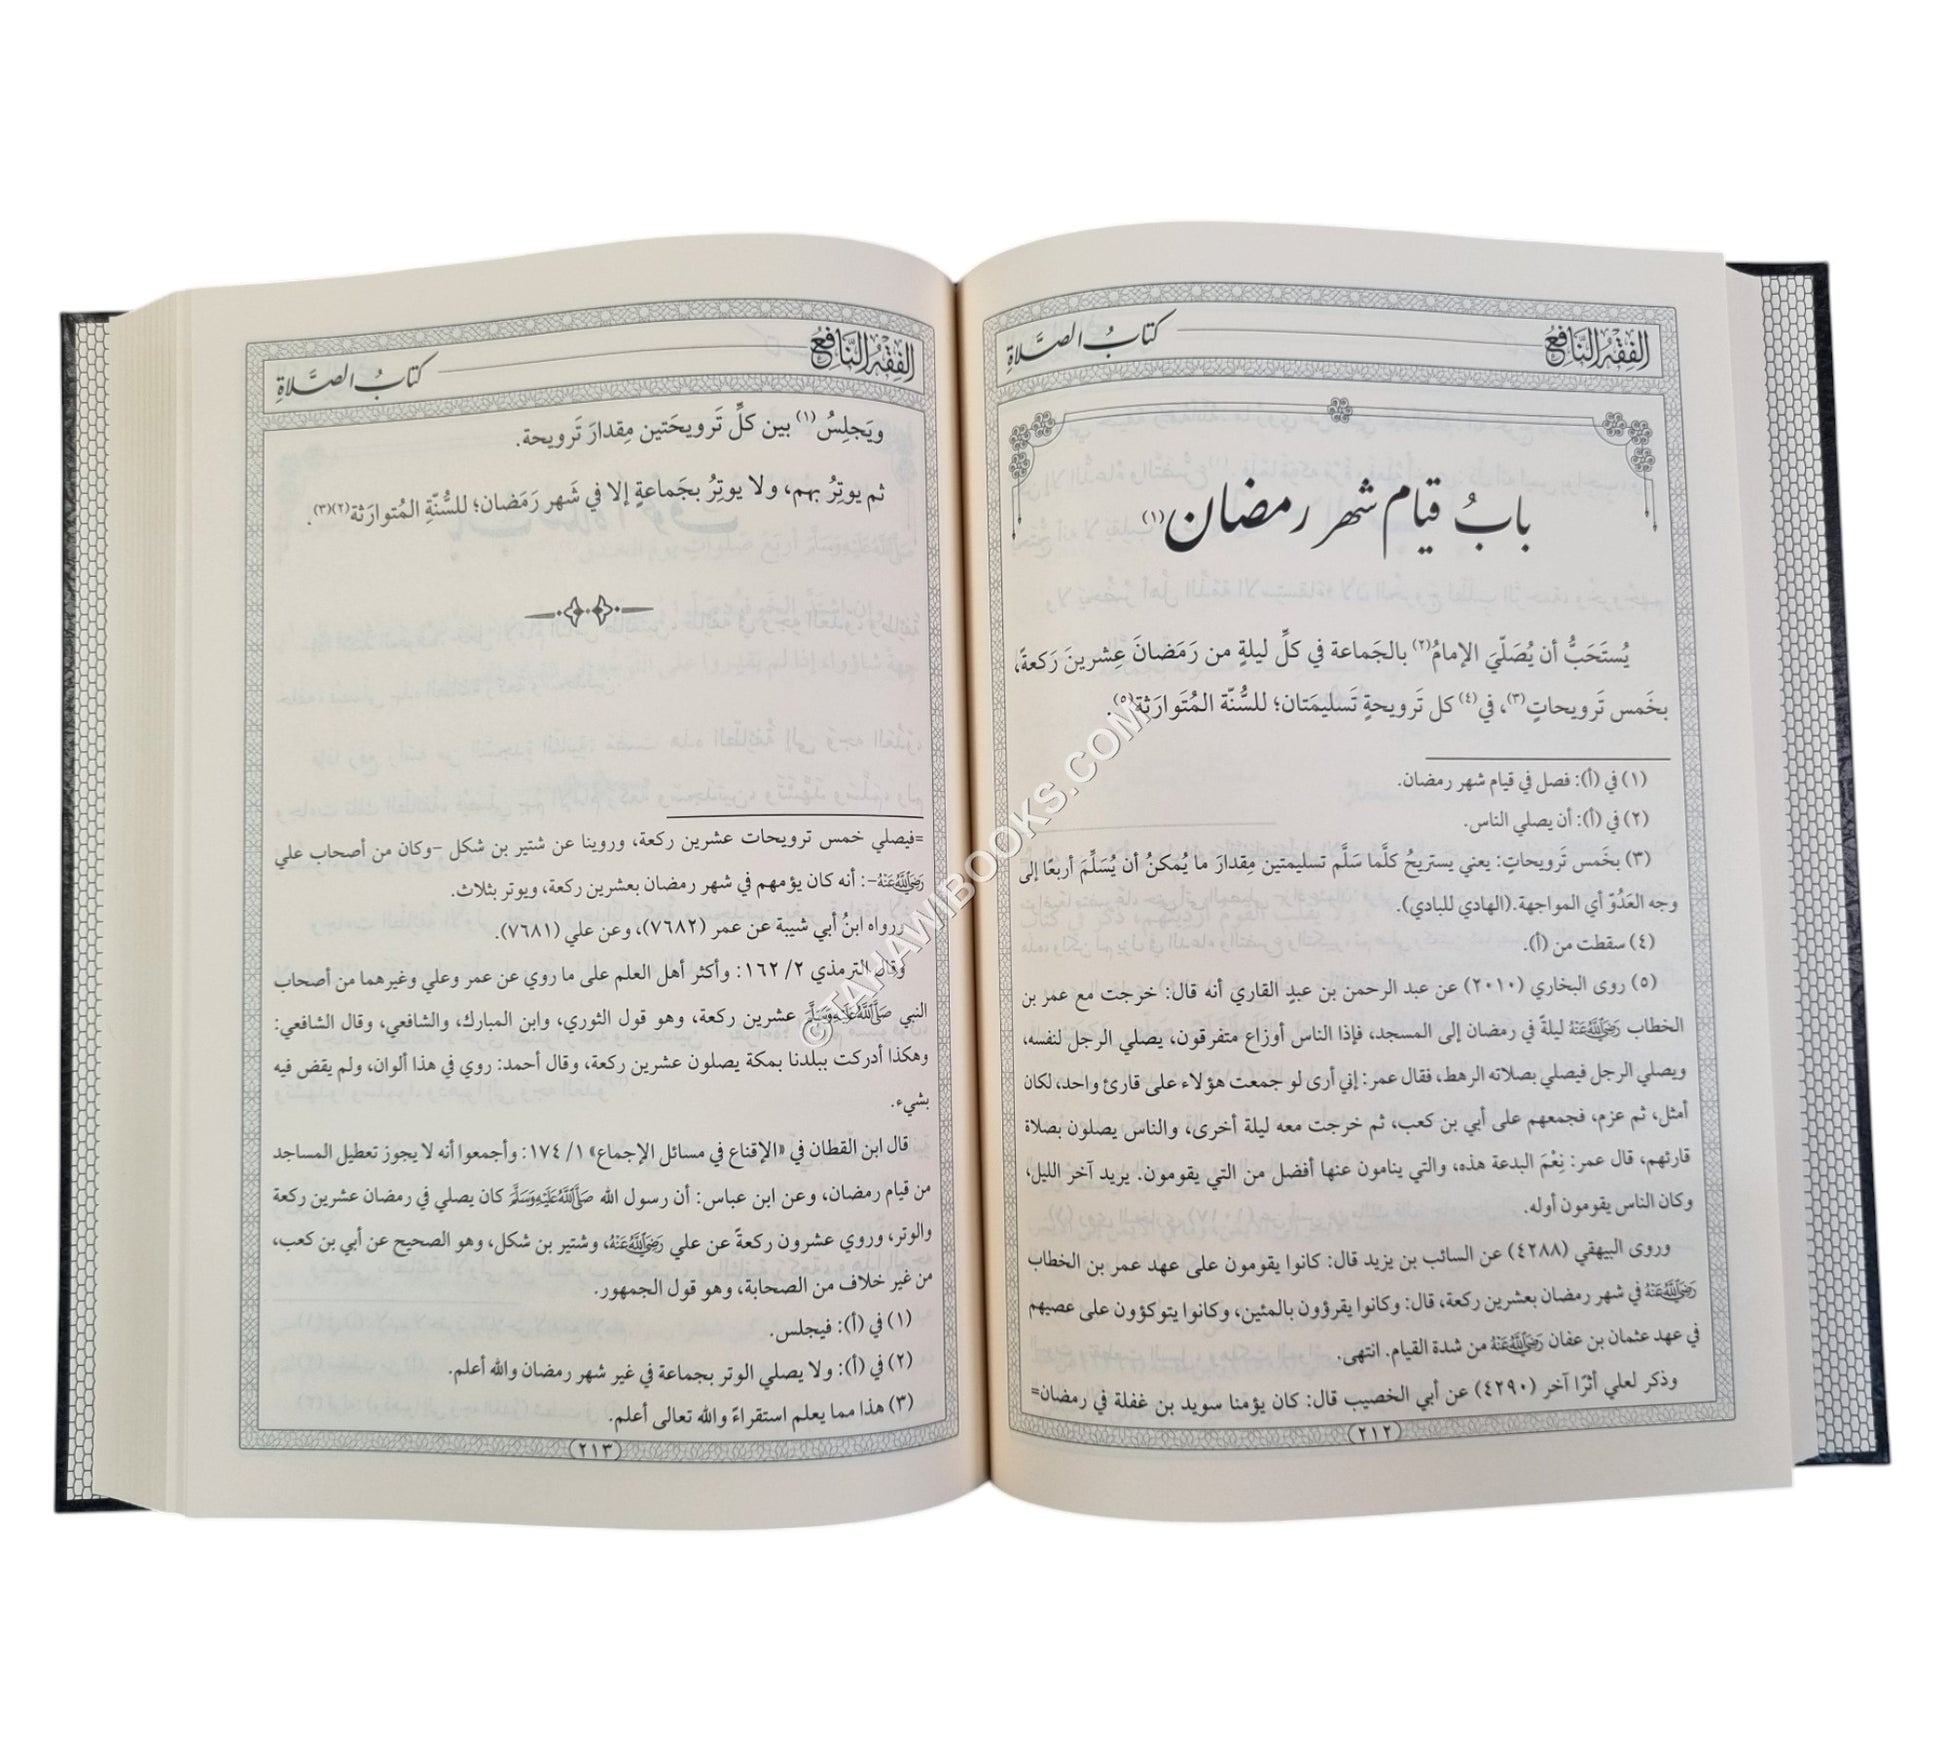 الفِقْهُ النَّافِعُ
كتابُ الصَّلاةِ
بابُ قيام شهر رمضان (١)
يُستَحَبُّ أن يُصَلّيَ الإمامُ(٢) بالجَماعة في كلِّ ليلةٍ من رَمَضانَ عِشرينَ رَكعةً،
بخَمس تَرويحاتٍ(٣)، في(٤) كل تَرويحةٍ تَسليمَتان؛ للسُّنّة المُتَوارَثة(٥).
(١) في (أ): فصل في قيام شهر رمضان.
(٢) في (أ): أن يصلي الناس.
(٣) بخَمس تَرويحاتٍ: يعني يستريحُ كلَّما سَلَّم تسليمتين مِقدارَ ما يُمكنُ أن يُسَلِّمَ أربعًا إلى
وجه العَدُوّ أي المواجهة.(الهادي للبادي).
(٤) سقطت من (أ).
(٥) روى البخاري (٢٠١٠) عن عبد الرحمن بن عبدٍ القاري أنه قال: خرجت مع عمر بن
الخطاب رَضِيَ اللَّهُ عَنْهُ ليلةً في رمضان إلى المسجد، فإذا الناس أوزاع متفرقون، يصلي الرجل لنفسه،
ويصلي الرجل فيصلي بصلاته الرهط، فقال عمر: إني أرى لو جمعت هؤلاء على قارئ واحد، لكان
أمثل، ثم عزم، فجمعهم على أبي بن كعب، ثم خرجت معه ليلة أخرى، والناس يصلون بصلاة
قارئهم، قال عمر: نِعْمَ البدعة هذه، والتي ينامون عنها أفضل من التي يقومون. يريد آخر الليل،
وكان الناس يقومون أوله.
وروى البيهقي (٤٢٨٨) عن السائب بن يزيد قال: كانوا يقومون على عهد عمر بن الخطاب
رَضِيَ اللَّهُ عَنْهُ في شهر رمضان بعشرين ركعة، قال: وكانوا يقرؤون بالمئين، وكانوا يتوكؤون على عصيهم
في عهد عثمان بن عفان رَضِيَ اللَّهُ عَنْهُ من شدة القيام. انتهى.
وذكر لعلي أثرًا آخر (٤٢٩٠) عن أبي الخصيب قال: كان يؤمنا سويد بن غفلة في رمضان=
(٢١٢)
الفِقْهُ النَّافِعُ
كتابُ الصَّلاةِ
ويَجلِسُ(١) بين كلِّ تَرويحَتين مِقدارَ تَرويحة.
ثم يوتِرُ بهم، ولا يوتِرُ بجَماعةٍ إلا في شَهر رَمَضان؛ للسُّنّةِ المُتوارَثة(٢)(٣).
=فيصلي خمس ترويحات عشرين ركعة، وروينا عن شتير بن شكل -وكان من أصحاب علي
رَضِيَ اللَّهُ عَنْهُ-: أنه كان يؤمهم في شهر رمضان بعشرين ركعة، ويوتر بثلاث.
ورواه ابنُ أبي شيبة عن عمر (٧٦٨٢)، وعن علي (٧٦٨١).
وقال الترمذي ٢/ ١٦٢: وأكثر أهل العلم على ما روي عن عمر وعلي وغيرهما من أصحاب
النبي صَلَّى اللَّهُ عَلَيْهِ وَسَلَّمَ عشرين ركعة، وهو قول الثوري، وابن المبارك، والشافعي، وقال الشافعي:
وهكذا أدركت ببلدنا بمكة يصلون عشرين ركعة، وقال أحمد: روي في هذا ألوان، ولم يقض فيه
بشيء.
قال ابن القطان في «الإقناع في مسائل الإجماع» ١/ ١٧٤: وأجمعوا أنه لا يجوز تعطيل المساجد
من قيام رمضان، وعن ابن عباس: أن رسول الله صَلَّى اللَّهُ عَلَيْهِ وَسَلَّمَ كان يصلي في رمضان عشرين ركعة
والوتر، وروي عشرون ركعةً عن علي رَضِيَ اللَّهُ عَنْهُ، وشتير بن شكل، وهو الصحيح عن أبي بن كعب،
من غير خلاف من الصحابة، وهو قول الجمهور.
(١) في (أ): فيجلس.
(٢) في (أ): ولا يصلي الوتر بجماعة في غير شهر رمضان والله أعلم.
(٣) هذا مما يعلم استقراءً والله تعالى أعلم.
(٢١٣)
©TAHAWIBOOKS.COM